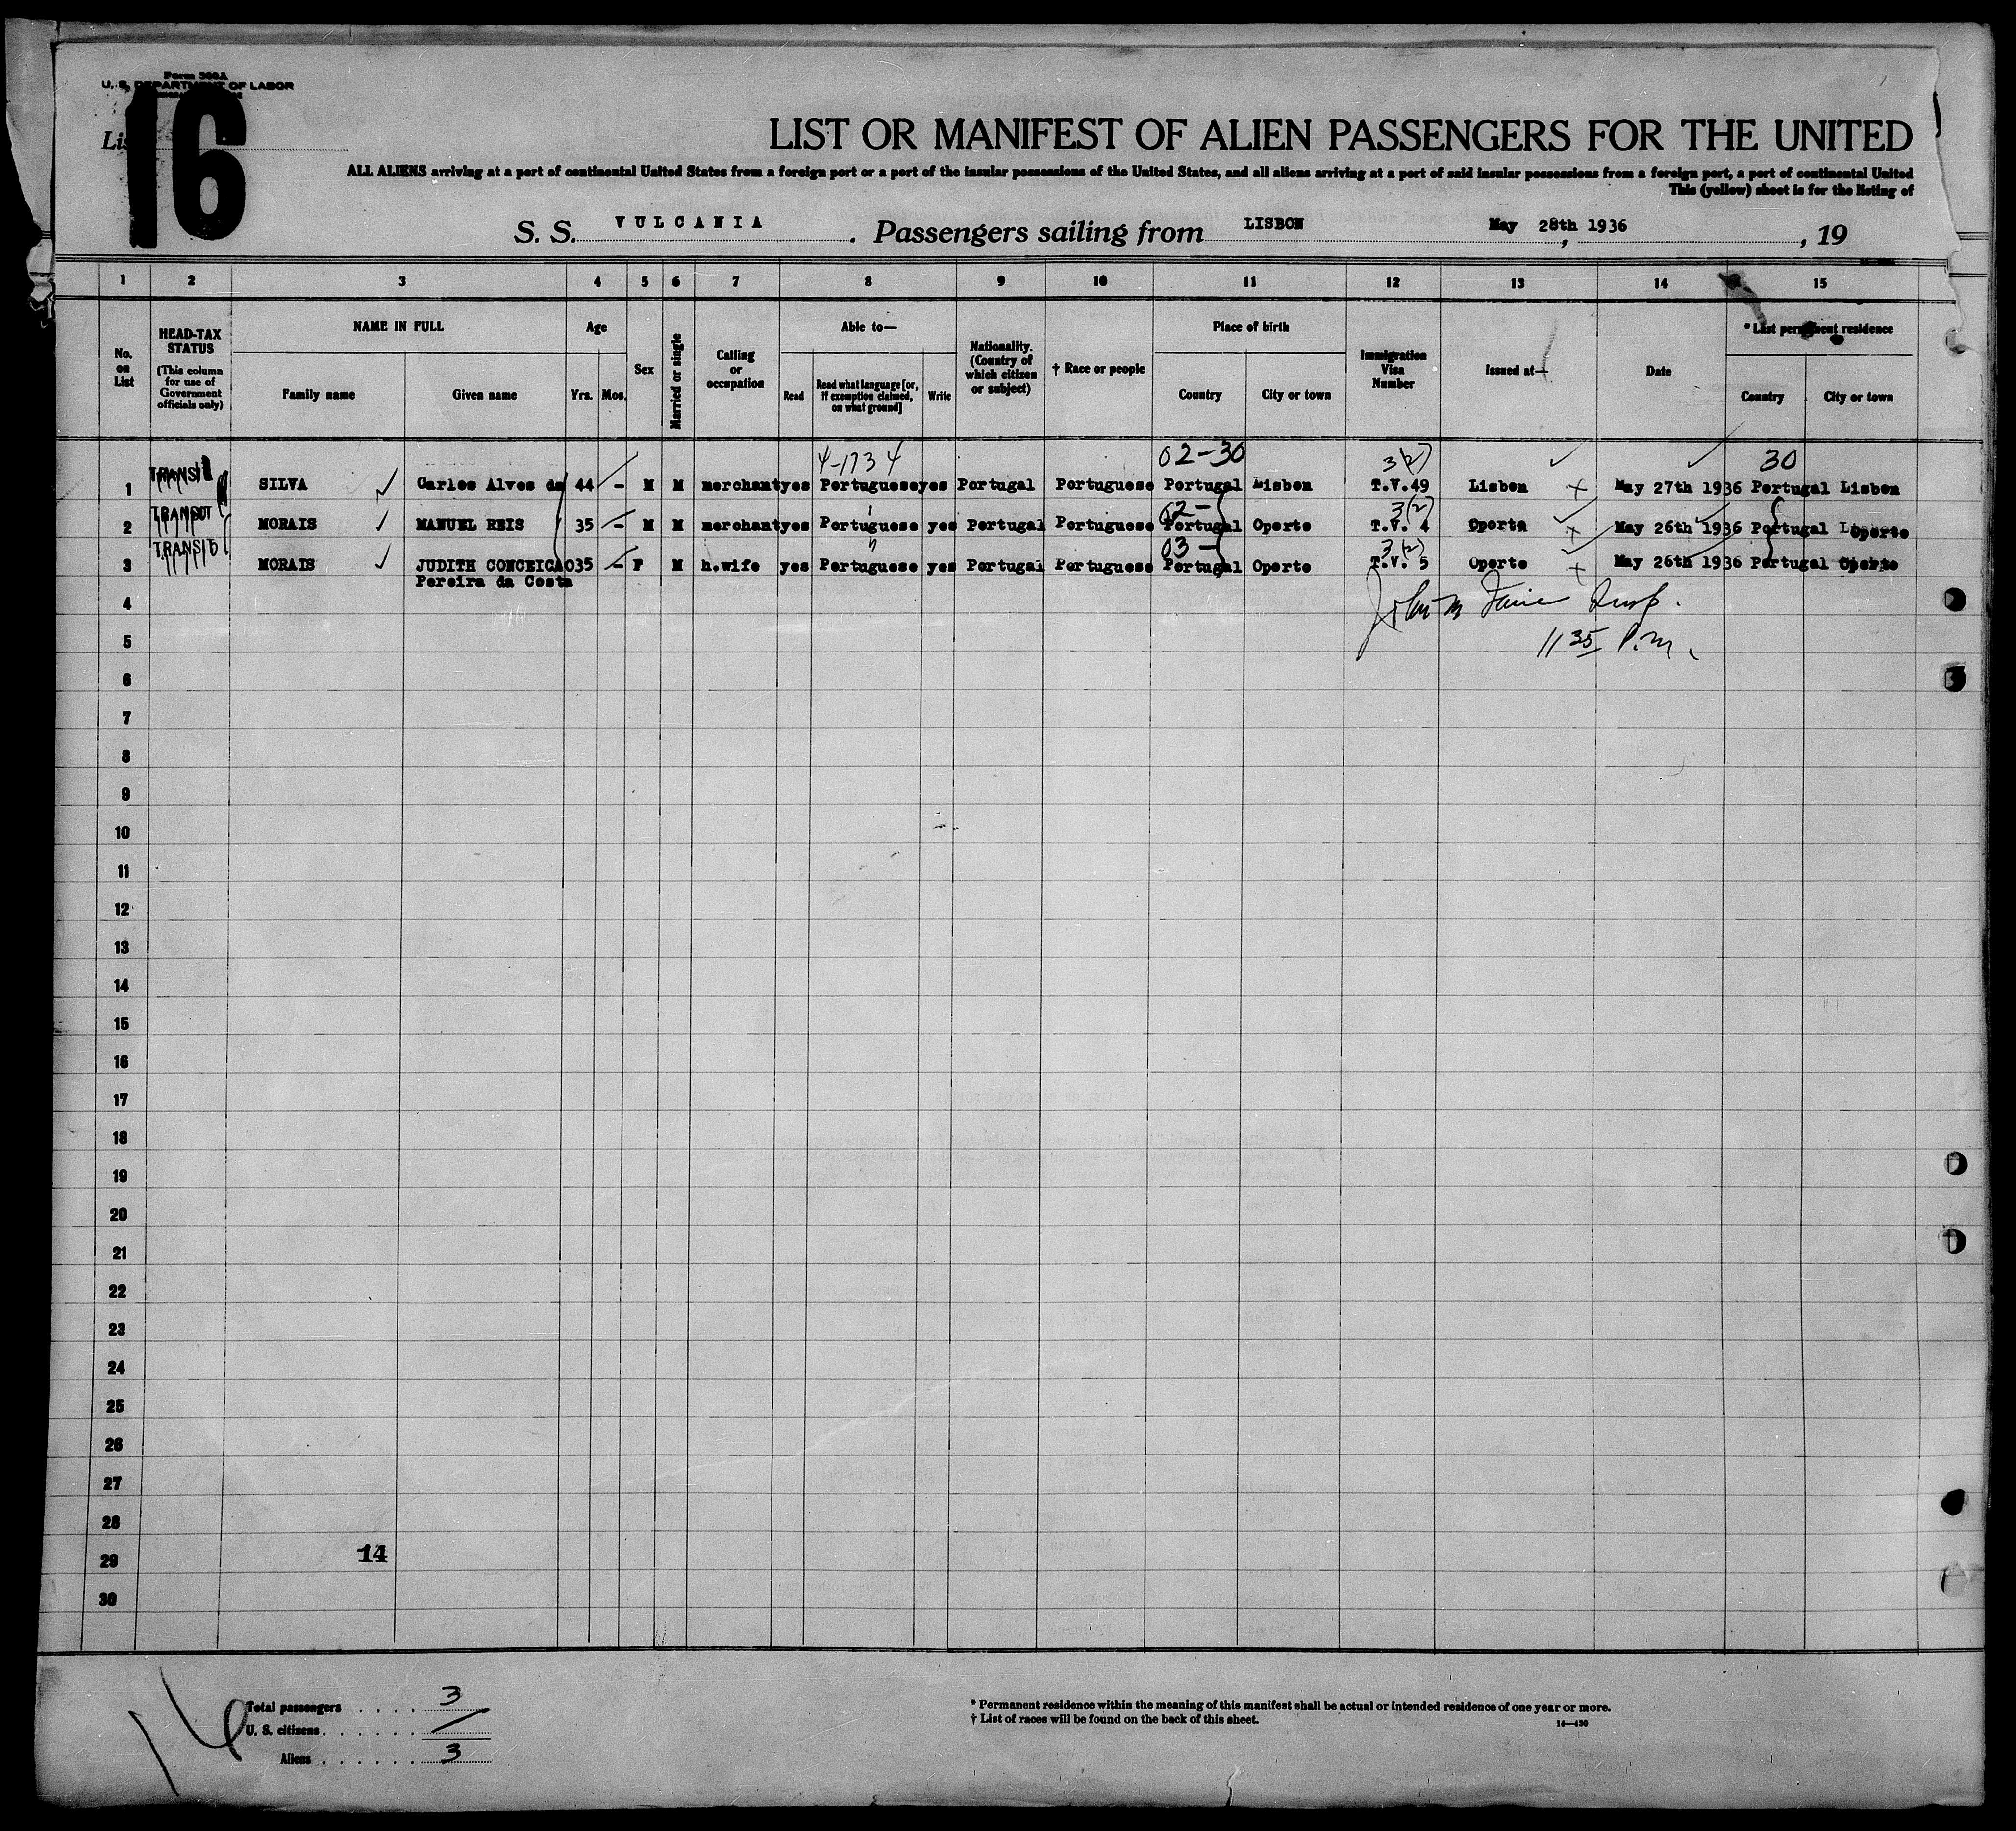 Form 500A
U. S. DEPARTMENT OF LABOR
List
16
LIST OR MANIFEST OF ALIEN PASSENGERS FOR THE UNITED
ALL ALIENS arriving at a port of continental United States from a foreign port or a port of the insular possessions of the United States, and all aliens arriving at a port of said insular possessions from a foreign port, a port of continental United
This (yellow) sheet is for the listing of
S. S. VULCANIA. Passengers sailing from LISBON May 28th 1936, 19
1 2 3 4 5 6 7 8 9 10 11 12 13 14 15
No. on List
HEAD-TAX STATUS (This column for use of Government officials only)
NAME IN FULL
Family name
Given name
Age
Yrs.
Mos.
Sex
Married or single
Calling or occupation
Able to—
Read
Read what language [or, if exemption claimed, on what ground]
Write
Nationality. (Country of which citizen or subject)
† Race or people
Place of birth
Country
City or town
Immigration Visa Number
Issued at—
Date
* Last permanent residence
Country
City or town
4-1734 02-30 3(2) 30
1 TRANSIT SILVA Carlos Alves da 44 - M M merchant yes Portuguese yes Portugal Portuguese Portugal Lisbon T.V.49 Lisbon May 27th 1936 Portugal Lisbon
02- 3(2)
2 TRANSIT MORAIS MANUEL REIS 35 - M M merchant yes Portuguese yes Portugal Portuguese Portugal Oporto T.V. 4 Oporto May 26th 1936 Portugal Oporto
03- 3(2)
3 TRANSIT MORAIS JUDITH CONCEICAO 35 - F M h.wife yes Portuguese yes Portugal Portuguese Portugal Oporto T.V. 5 Oporto May 26th 1936 Portugal Oporto
Pereira da Costa
4
John M Insp.
5
11 35 P.M.
6
7
8
9
10
11
12
13
14
15
16
17
18
19
20
21
22
23
24
25
26
27
28
29 14
30
16
Total passengers . . . . 3
U. S. citizens . . . . . . /
Aliens . . . . . . 3
* Permanent residence within the meaning of this manifest shall be actual or intended residence of one year or more.
† List of races will be found on the back of this sheet.
14—430